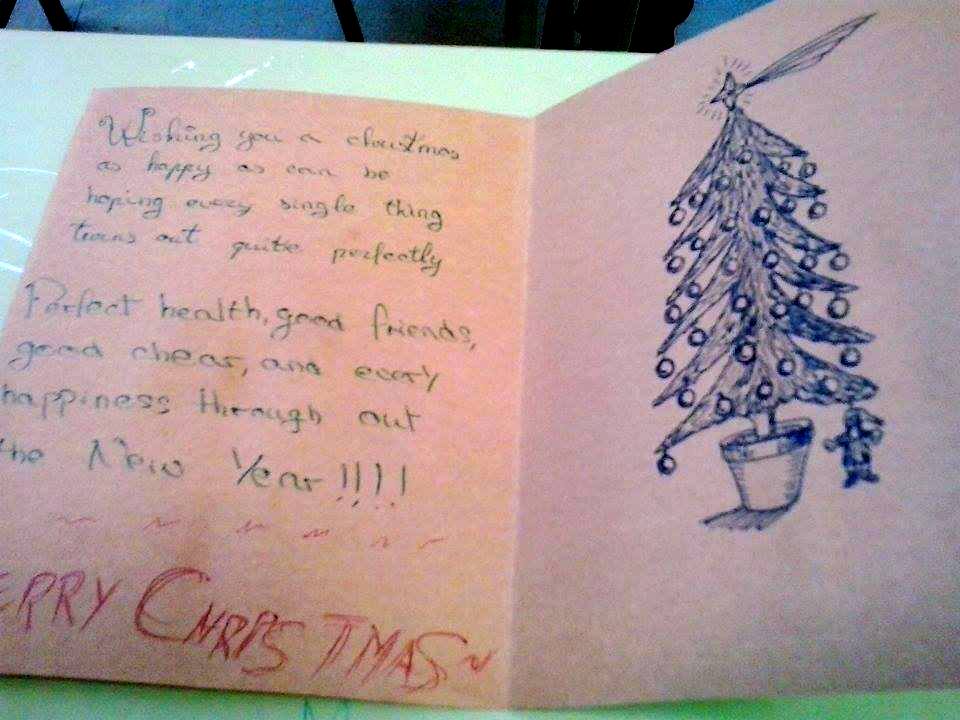 Wishing you a christmas
as happy as can be
hoping every single thing
turns out quite perfectly
Perfect health, good friends,
good chear, and every
happiness through out
the New Year!!!!
ERRY CHRISTMAS